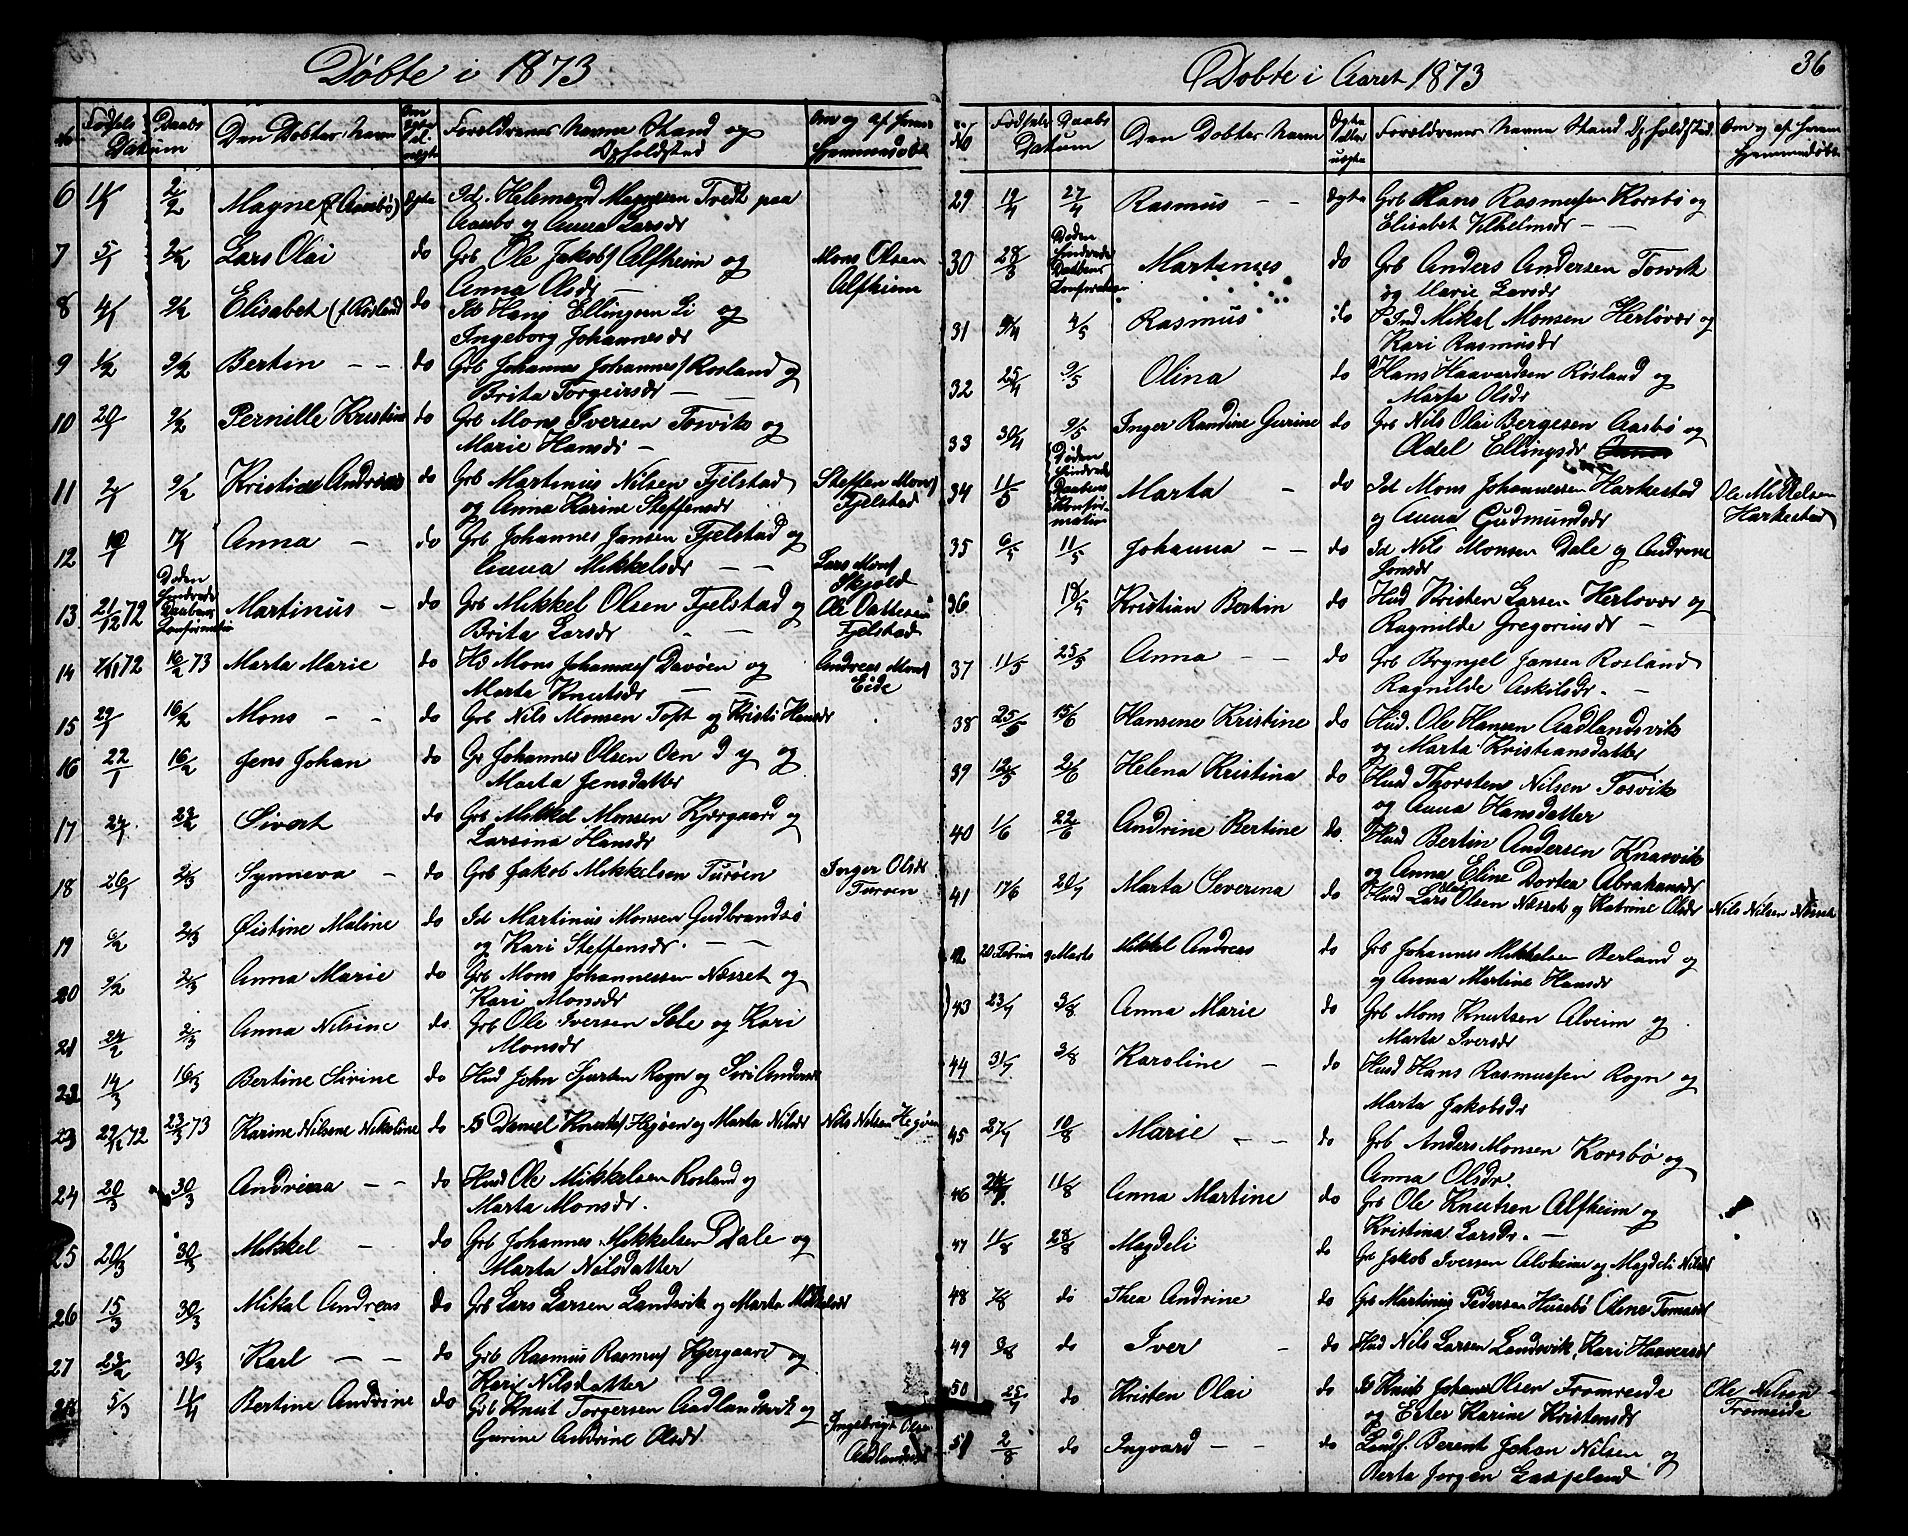 Døbte i 1873
No Fødsels Daabs Datum Den Døbtes Navn Forældrenes Navne Stand og Opholdsted Om og af hvem hjemmedøbt
6 2/2 Magne ægte Id. Helemand Magnesen Tvedt paa
Aasbø og Anna Larsdr
7 5/1 Lars Olai do Grb Ole Jakobs Alfheim og Mons Olsen
Anna Olsdr — Alfheim
8 4/1 9/2 Elisabet (f Røsland do Id Hans Ellingsen Li og
Ingeborg Johannesdr
9 1/2 9/2 Bertin — — do Grb Johannes Johannes Rosland og
Brita Torgeirsdr —
10 20/1 9/2 Pernille Kristine do Grb Mons Iversen Tosvik og
Marie Hansdr —
11 2/1 9/2 Kristian Andreas do Grb Martinus Nilsen Fjelstad Steffen Mons
og Anna Karine Steffensdr Fjelstad
12 Anna — do Grb Johannes Jansen Fjelstad og
Anna Mikkelsdr — — Lars Mons
Skjold
13 21/12 72 Døden hindrede Daabens Konfirmation Martinus — do Grb Mikkel Olsen Fjelstad og Ole
Brita Larsdr — Fjelstad
14 72 16/2 73 Marta Marie do Hd Mons Johannes Davøen og Andreas Mons
Marta Knutsdr — Eide
15 29/1 16/2 Mons — — do Grb Nils Monsen Toft og Kristi Hansdr
16 22/1 16/2 Jens Johan do Gr Johannes Olsen Oen d y og
Marta Jensdatter
17 23/2 Sivert do Grb Mikkel Monsen Kjærgaard og
Larsina Hansdr
18 26/1 2/3 Synneva — do Grb Jakob Mikkelsen Turøen Inger Olsdr
Turøen
19 6/2 2/3 Øistine Maline do Id Martinus Monsen Gudbrandsø
og Kari Steffensdr. — —
20 9/2 2/3 Anna Marie do Grb Mons Johannessen Næsset og
Kari Monsdr
21 2/3 Anna Nilsine do. Grb Ole Iversen Sele og Kari
Monsdr
22 14/3 16/3 Bertine Sirine do Hud John Sjursen Rogn og Siri Andersdr
23 72 23/3 73 Karine Nilsene Nikoline do S Daniel Knuts Hegøen og Marta Nilsdr Nils Nilsen Hegøen
24 20/3 30/3 Andrina — — do Hud Ole Mikkelsen Rosland og
Marta Monsdr.
25 20/3 30/3 Mikkel — do Grb Johannes Mikkelsen Dale og
Marta Nilsdatter
26 15/3 30/3 Mikal Andreas do Grb Lars Larsen Landsvik og Marta Mikkelsdr
27 23/2 30/3 Karl — — do Grb Rasmus Rasmus Kjergaard og
Kari Nilsdatter
28 5/3 11/4 Bertine Andrine do Grb Knut Torgersen Aadlandsvik og Ingebrigt Olsen
Gurine Andrine Olsdr Aadlandsvik
36
Døbte i Aaret 1873
No Fødsels Daabs Datum Den Døbtes Navn Ægte eller uægte Forældrenes Navne Stand Opholdsted Om og af hvem hjemmedøbt
29 19/4 27/4 Rasmus — — ægte Grb Hans Rasmussen Korsbø og
Elisabet Vilhelmsdr —
30 28/3 Døden hindrede Daabens Konfirmation Martinus do Grb Anders Andersen Tosvik
og Marie Larsdr
31 4/5 Rasmus do Ind Mikal Monsen Herløvær og
Kari Rasmusdr
32 25/4 9/5 Olina do Hans Haavardsen Røsland og
Marta Olsdr
33 30/4 9/5 Inger Randine Gurine do Grb Nils Olai Bergesen Aasbø og
Adel Ellingsdr
34 11/5 Døden hindrede Daabens Konfirmation Marta — do Id Mons Johannessen Harkestad Ole Mikkelsen
og Anna Gudmundsdr Harkestad
35 6/5 11/5 Johanna — — do Id Nils Monsen Dale og Andrine
Jonsdr
36 18/5 Kristian Bertin do Hud Kristen Larsen Herlovær og
Ragnilde Gregoriusdr —
37 11/5 25/5 Anna — — do Grb Brynjel Jansen Rosland
Ragnilde Askilsdr. —
38 25/5 15/6 Hansene Kristine do Hud. Ole Hansen Aadlandsvik
og Marta Kristiansdatter
39 Helena Kristina do Hud Thorsten Nilsen Tosvik
og Anna Hansdatter
40 1/6 22/6 Andrine Bertine do. Hud Bertin Andersen Knasvik
og Anna Eline Dortea Abrahamsdr
41 17/6 20/7 Marta Severina do Hud Lars Olsen Næsset og Katrine Olsdr Nils Nilsen Næsset
42 20 Februar 9 Marts Mikkel Andreas do Grb Johannes Mikkelsen Berland og
og Anna Martine Hansdr
43 23/7 3/8 Anna Marie do Grb Mons Knutsen Alveim og
Marta Iversdr
44 31/7 3/8 Karoline — do Husd Hans Rasmussen Rogn og
Marta Jakobsdr
45 27/7 10/8 Marie — — do Grb Anders Monsen Korsbø og
Anna Olsdr.
46 11/8 Anna Martine do Grb Ole Knutsen Alfheim og
Kristina Larsdr. —
47 11/8 28/8 Magdeli do Grb Jakob Iversen Alvheim og Magdeli Nilsdr
48 7/8 do Thea Andrine do Grb Martinus Pedersen Husebø Olene Tomasdr
49 3/8 do Iver — do Hud Nils Larsen Landsvik, Kari Haaversdr
50 25/7 do Kristen Olai do S Knut Johan Olsen Fromreide Ole Nilsen
og Ester Karine Kristensdr Fromreide
51 2/8 do Ingvard — — do Landh. Berent Johan Nilsen og
Berta Jorgen